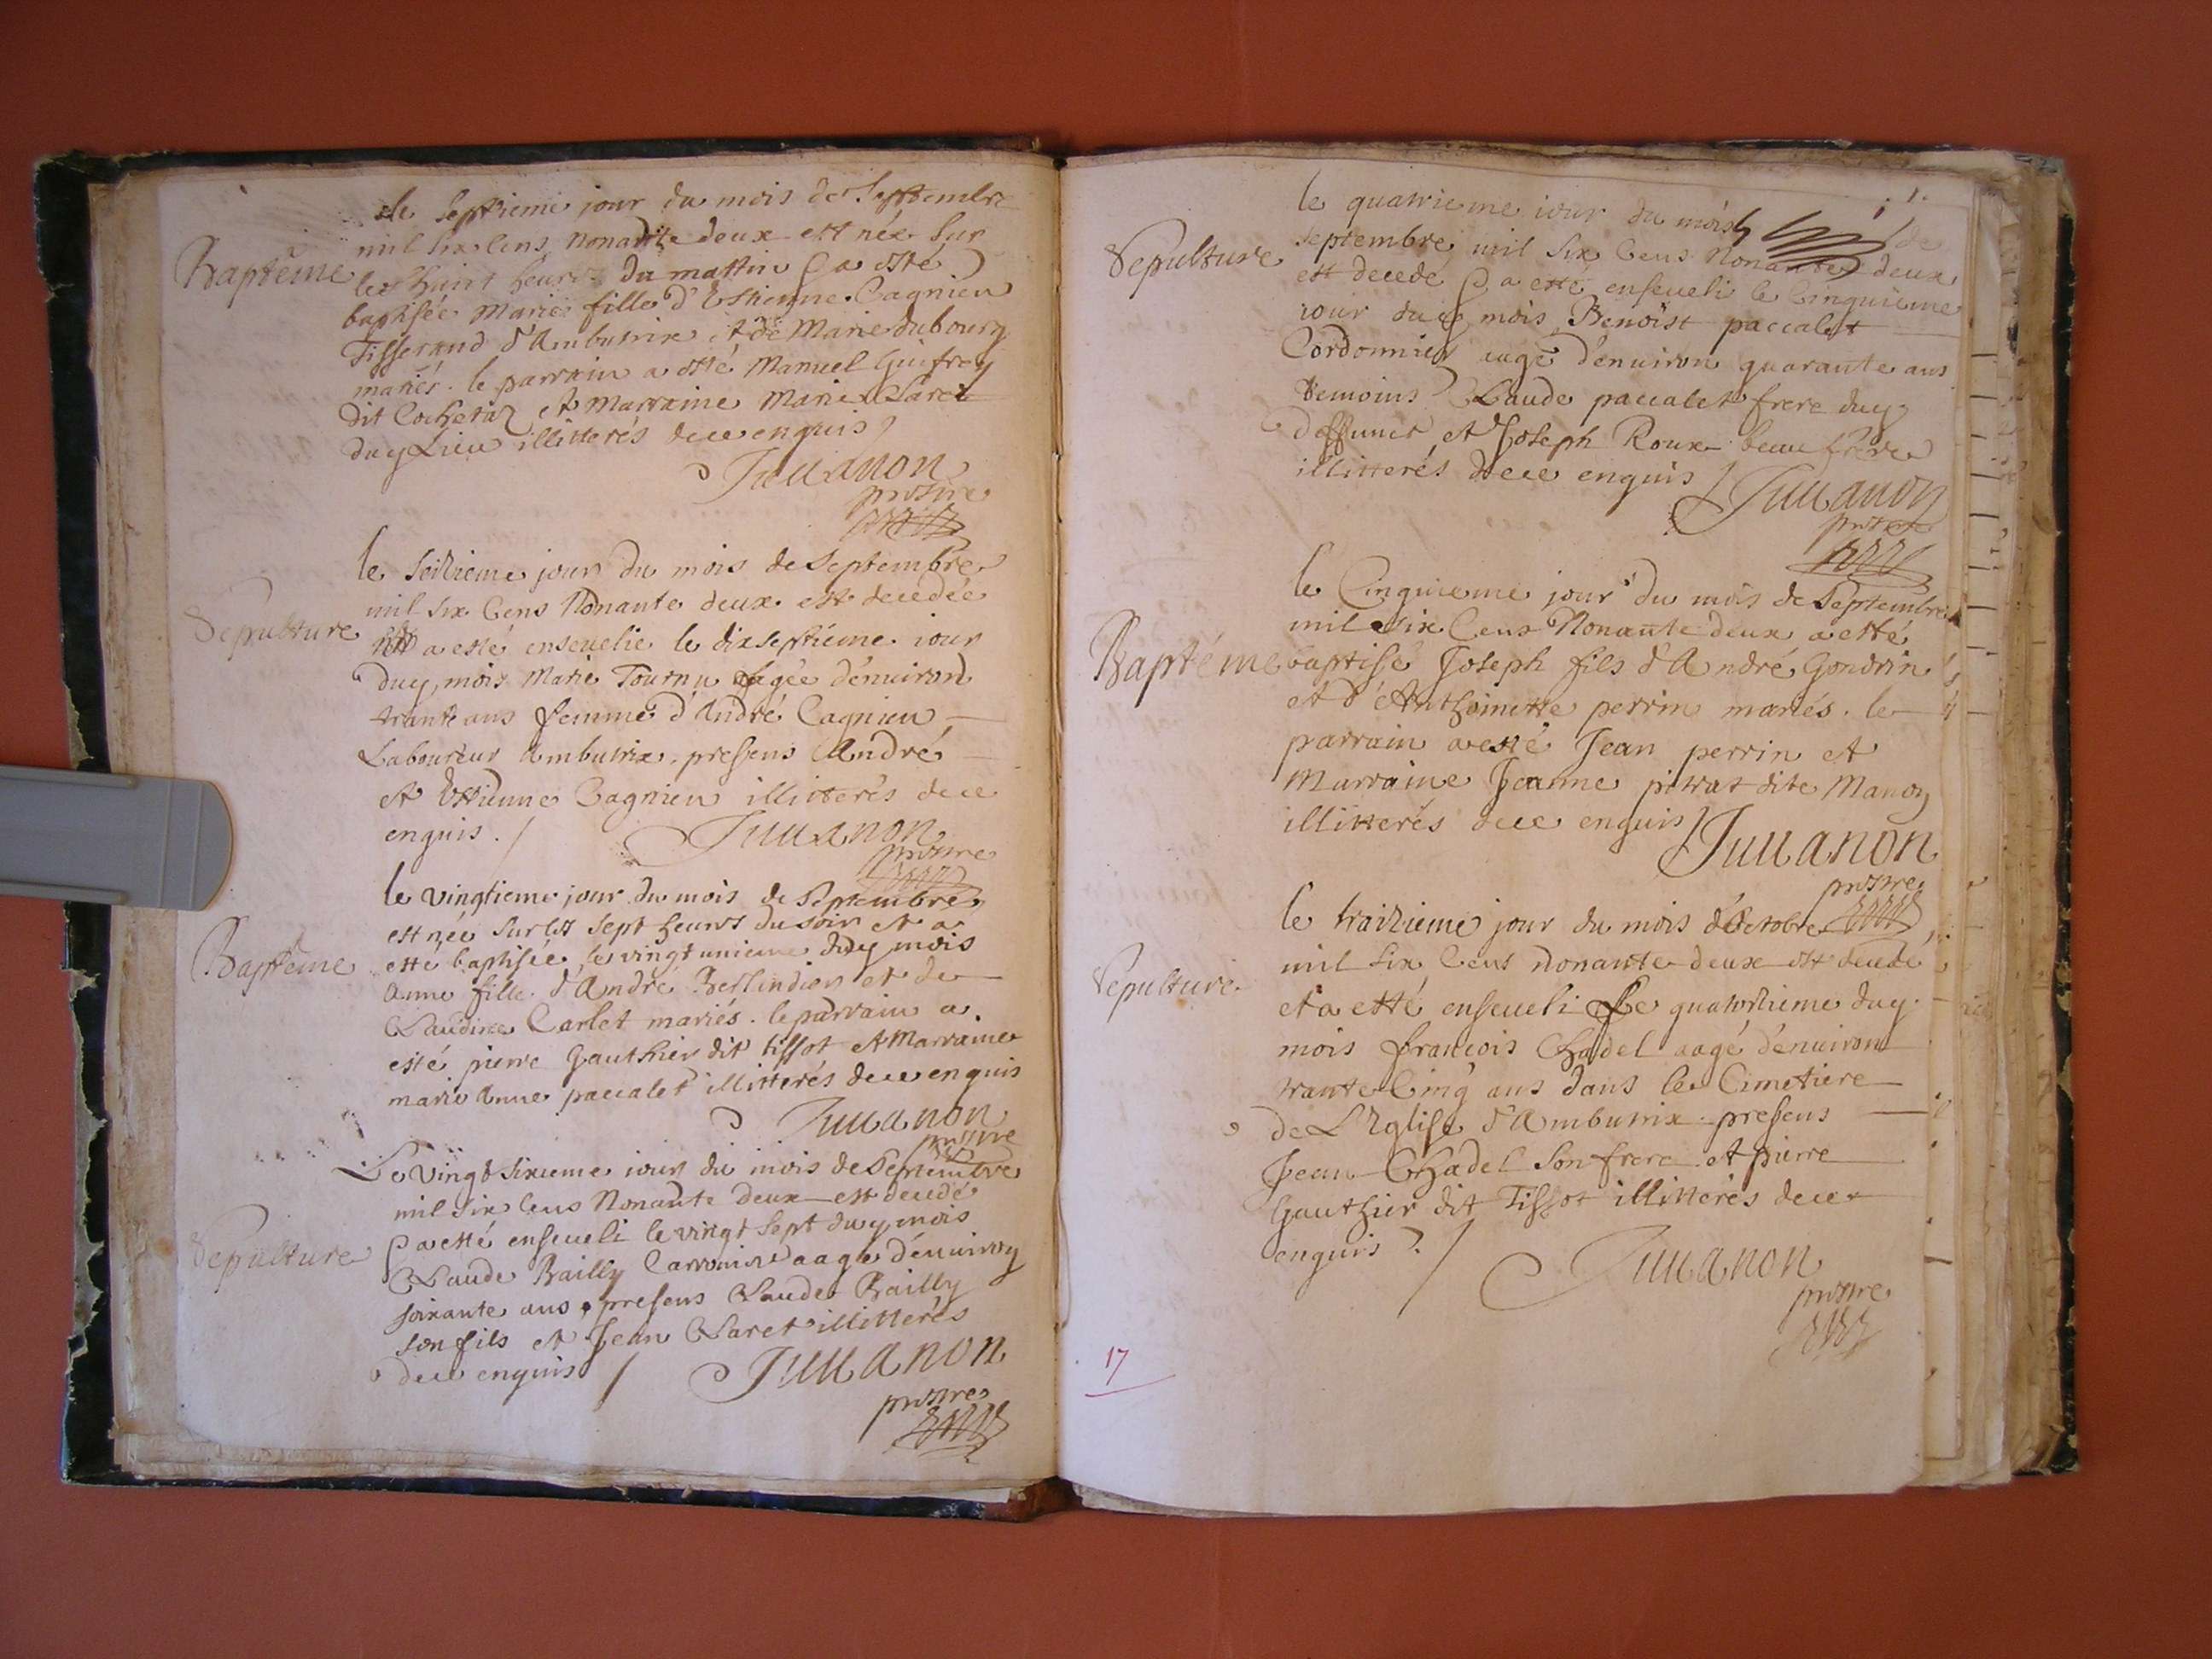 le septieme jour du mois de Septembre
mil six cens nonante deux est née sur
Baptême
les huit heures du mattin & a esté
baptisée Marie fille d'Estienne Cagnieu
Tisserand d'Ambutrix et de Marie dubourg
mariés. le parrain a esté Manuel Guifrey
dit Cocheraz et Marraine Marie Claret
duy Lieu illitterés de ce enquis
Juuanon
prestre
le seizieme jour du mois de Septembre
mil six Cens Nonante deux est decedée
Sepulture
a esté enseuelie le dixseptiéme iour
duy mois Marie Tournu aagée d'enuiron
trante ans femme d'André Cagnieu
Laboureur Ambutrix. presens André
et Estienne Cagnieu illitterés de ce
enquis. /
Juuanon
prestre
le vingtieme jour du mois de Septembre
est née sur les sept heures du soir et a
Baptême
esté baptisée le vingt unieme duy mois
Anne fille d'André Berlindien et de
Claudine Carlet mariés. le parrain a
esté pierre Gauthier dit tissot et Marraine
marie Anne paccalet illitterés de ce enquis
Juuanon
prestre
Le Vingt sixieme iour du mois de Septembre
mil six Cens Nonante deux est decedé
Sepulture
& a esté enseueli le vingt sept duy mois
Claude Bailly aagé d'enuiron
soixante ans, presens Claude Bailly
son fils et Jean Claret illitterés
de ce enquis /
Juuanon
prestre
le quatrieme iour du mois de
Sepulture
septembre mil six Cens Nonante deux
est decedé & a esté enseueli le Cinquieme
iour du mois Benoist paccalet
Cordonnier aagé d'enuiron quarante ans
temoins Claude paccalet frere duy
deffunct et Joseph Roux beau frere
illitterés de ce enquis /
Juuanon
prestre
le Cinquieme jour du mois de Septembre
mil six Cens Nonante deux a esté
Baptéme
baptisé Joseph fils d'André Gondrin
et d'Anthoinette perrin mariés. le
parrain a esté Jean perrin et
Marraine Jeanne pitrat dite Manon
illitterés de ce enquis /
Juuanon
prestre
le traizieme jour du mois d'Octobre
mil six Cens nonante deux est decedé
Sepulture.
et a esté enseueli le quatorzieme duy
mois francois Chadel aagé d'enuiron
trante Cinq ans dans le Cimetiere
de L'Eglise d'Ambutrix. presens
Jean Chadel son frere et pierre
Gauthier dit Tissot illitterés de ce
enquis /
Juuanon
prestre
17